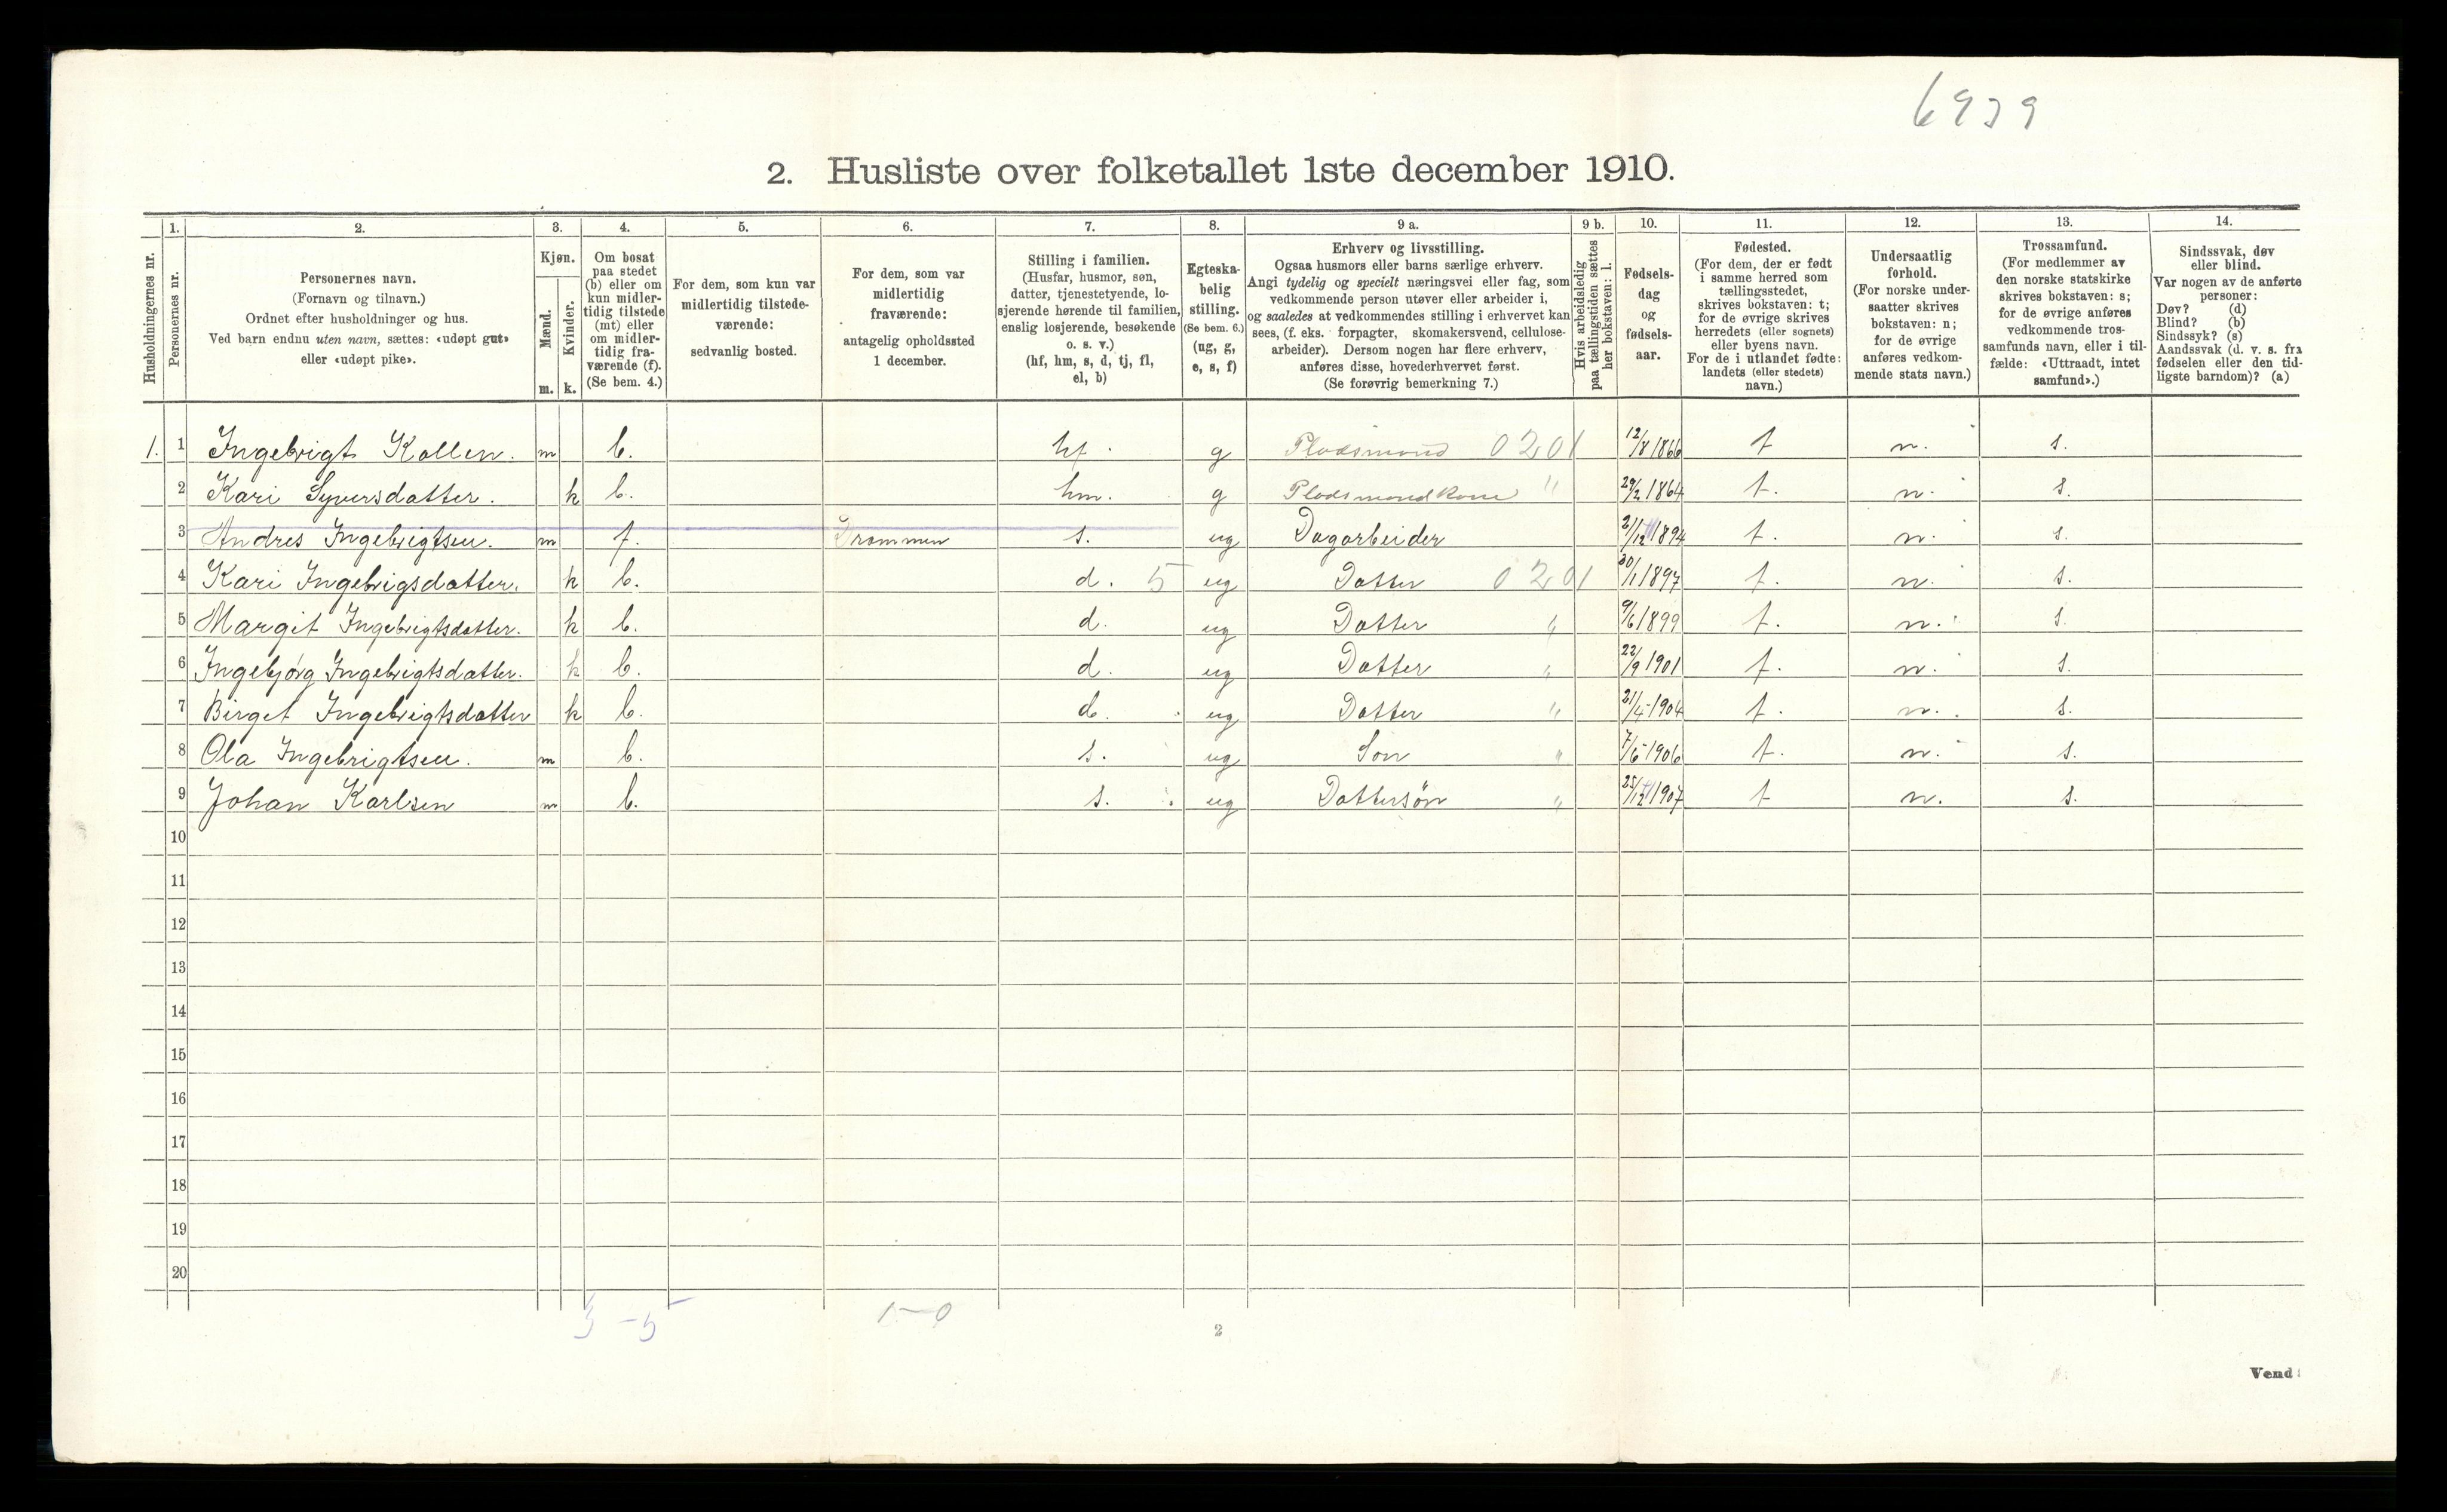 6939
2. Husliste over folketallet 1ste december 1910.
Husholdningernes nr.
1. Personernes nr.
2. Personernes navn.
(Fornavn og tilnavn.)
Ordnet efter husholdninger og hus.
Ved barn endnu uten navn, sættes: «udøpt gut»
eller «udøpt pike».
3. Kjøn.
Mænd. m.
Kvinder. k.
4. Om bosat
paa stedet
(b) eller om
kun midler-
tidig tilstede
(mt) eller
om midler-
tidig fra-
værende (f).
(Se bem. 4.)
5. For dem, som kun var
midlertidig tilstede-
værende:
sedvanlig bosted.
6. For dem, som var
midlertidig
fraværende:
antagelig opholdssted
1 december.
7. Stilling i familien.
(Husfar, husmor, søn,
datter, tjenestetyende, lo-
sjerende hørende til familien,
enslig losjerende, besøkende
o. s. v.)
(hf, hm, s, d, tj, fl,
el, b)
8. Egteska-
belig
stilling.
(Se bem. 6.)
(ug, g,
e, s, f)
9 a. Erhverv og livsstilling.
Ogsaa husmors eller barns særlige erhverv.
Angi tydelig og specielt næringsvei eller fag, som
vedkommende person utøver eller arbeider i,
og saaledes at vedkommendes stilling i erhvervet kan
sees, (f. eks. forpagter, skomakersvend, cellulose-
arbeider). Dersom nogen har flere erhverv,
anføres disse, hovederhvervet først.
(Se forøvrig bemerkning 7.)
9 b. Hvis arbeidsledig
paa tællingstiden sættes
her bokstaven: l.
10. Fødsels-
dag
og
fødsels-
aar.
11. Fødested.
(For dem, der er født
i samme herred som
tællingsstedet,
skrives bokstaven: t;
for de øvrige skrives
herredets (eller sognets)
eller byens navn.
For de i utlandet fødte:
landets (eller stedets)
navn.)
12. Undersaatlig
forhold.
(For norske under-
saatter skrives
bokstaven: n;
for de øvrige
anføres vedkom-
mende stats navn.)
13. Trossamfund.
(For medlemmer av
den norske statskirke
skrives bokstaven: s;
for de øvrige anføres
vedkommende tros-
samfunds navn, eller i til-
fælde: «Uttraadt, intet
samfund».)
14. Sindssvak, døv
eller blind.
Var nogen av de anførte
personer:
Døv? (d)
Blind? (b)
Sindssyk? (s)
Aandssvak (d. v. s. fra
fødselen eller den tid-
ligste barndom)? (a)
1. 1 Ingebrigt Kollen. m b. hf. g Pladsmand 0201 12/8 1866 t n. s.
2 Kari Syversdatter. k b. hm. g Pladsmandkone " 29/2 1864 t. n. s.
3 Andres Ingebrigtsen. m f. Drammen s. ug Dagarbeider 21/12 1894 t. n. s.
4 Kari Ingebrigsdatter. k b. d. 5 ug Datter 0201 30/1 1897 t. n. s.
5 Margit Ingebrigtsdatter. k b. d. ug Datter " 9/6 1899 t. n. s.
6 Ingebjørg Ingebrigtsdatter. k b. d. ug Datter " 22/9 1901 t. n. s.
7 Birget Ingebrigtsdatter k b. d. ug Datter " 21/4 1904 t. n. s.
8 Ola Ingebrigtsen. m b. s. ug Søn " 7/6 1906 t. n. s.
9 Johan Karlsen m b. s. ug Dattersøn " 25/12 1907 t n. s.
10
11
12
13
14
15
16
17
18
19
20
3 - 5 1-0
2
Vend!